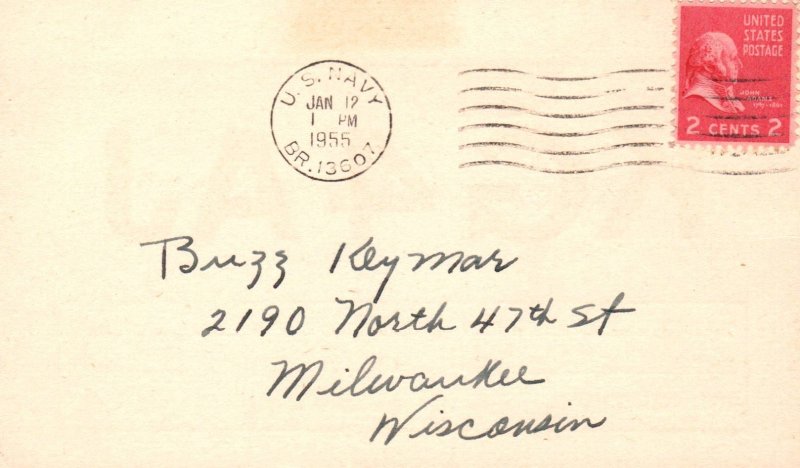 U.S. NAVY
JAN 12
1 PM
1955
BR. 13607
UNITED
STATES
POSTAGE
JOHN
ADAMS
1797-1801
2 CENTS 2
Buzz Keymar
2190 North 47th St
Milwaukee
Wisconsin